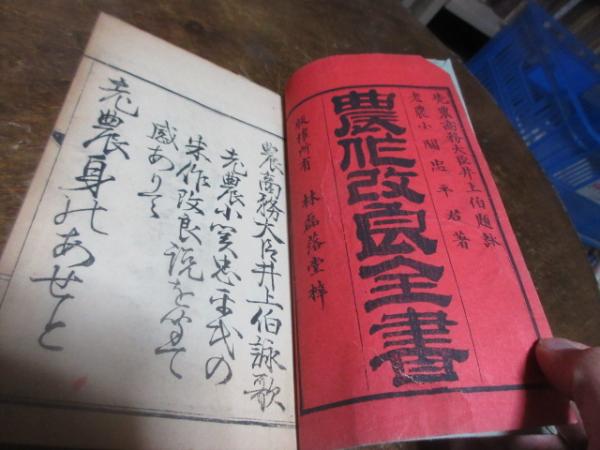 先農商務大臣井上伯題詠
老農小関忠平君著
農作改良全書
版権所有 林磊落堂梓
農商務大臣井上伯詠歌
老農小関忠平氏の
米作改良説を笑て
感ありて
老農身のあせと